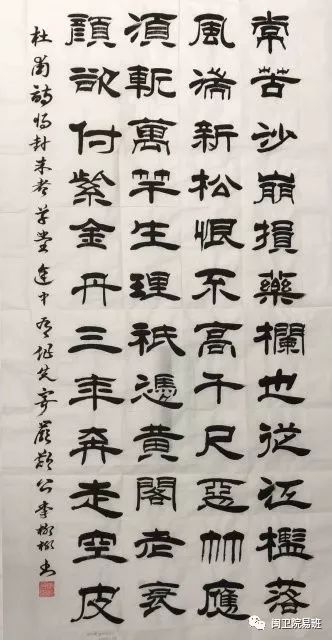 常苦沙崩損藥欄也從江檻落
風湍新松恨不高千尺惡竹應
湏斬萬竿生理祇憑黃閣老衰
顏欲付紫金丹三年奔走空皮
杜甫詩將赴成都草堂途中有作先寄嚴鄭公 李書
闽卫院易班